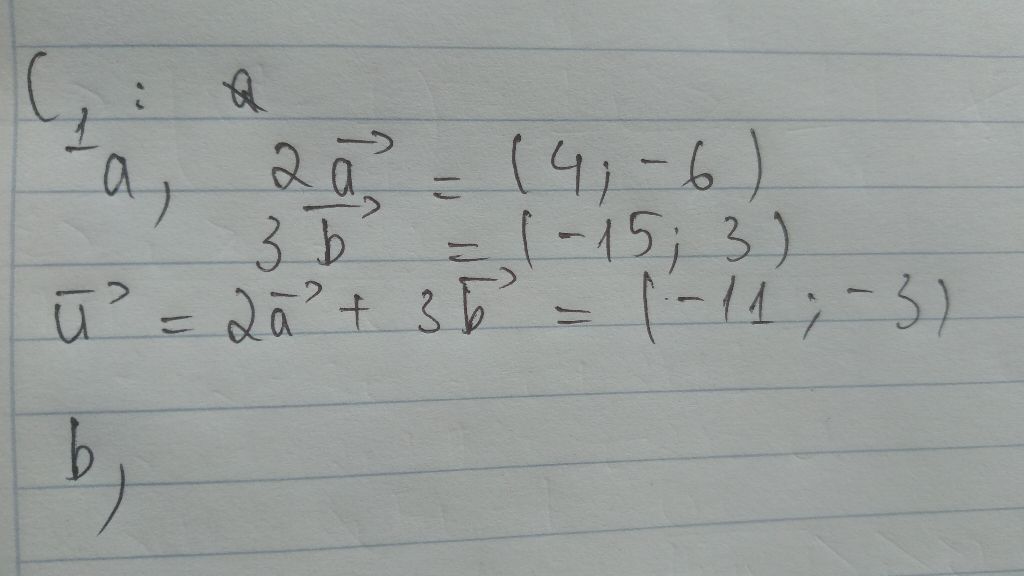 C₁ : a
a, 2a⃗ = (4; -6)
3b⃗ = (-15; 3)
u⃗ = 2a⃗ + 3b⃗ = (-11; -3)
b,